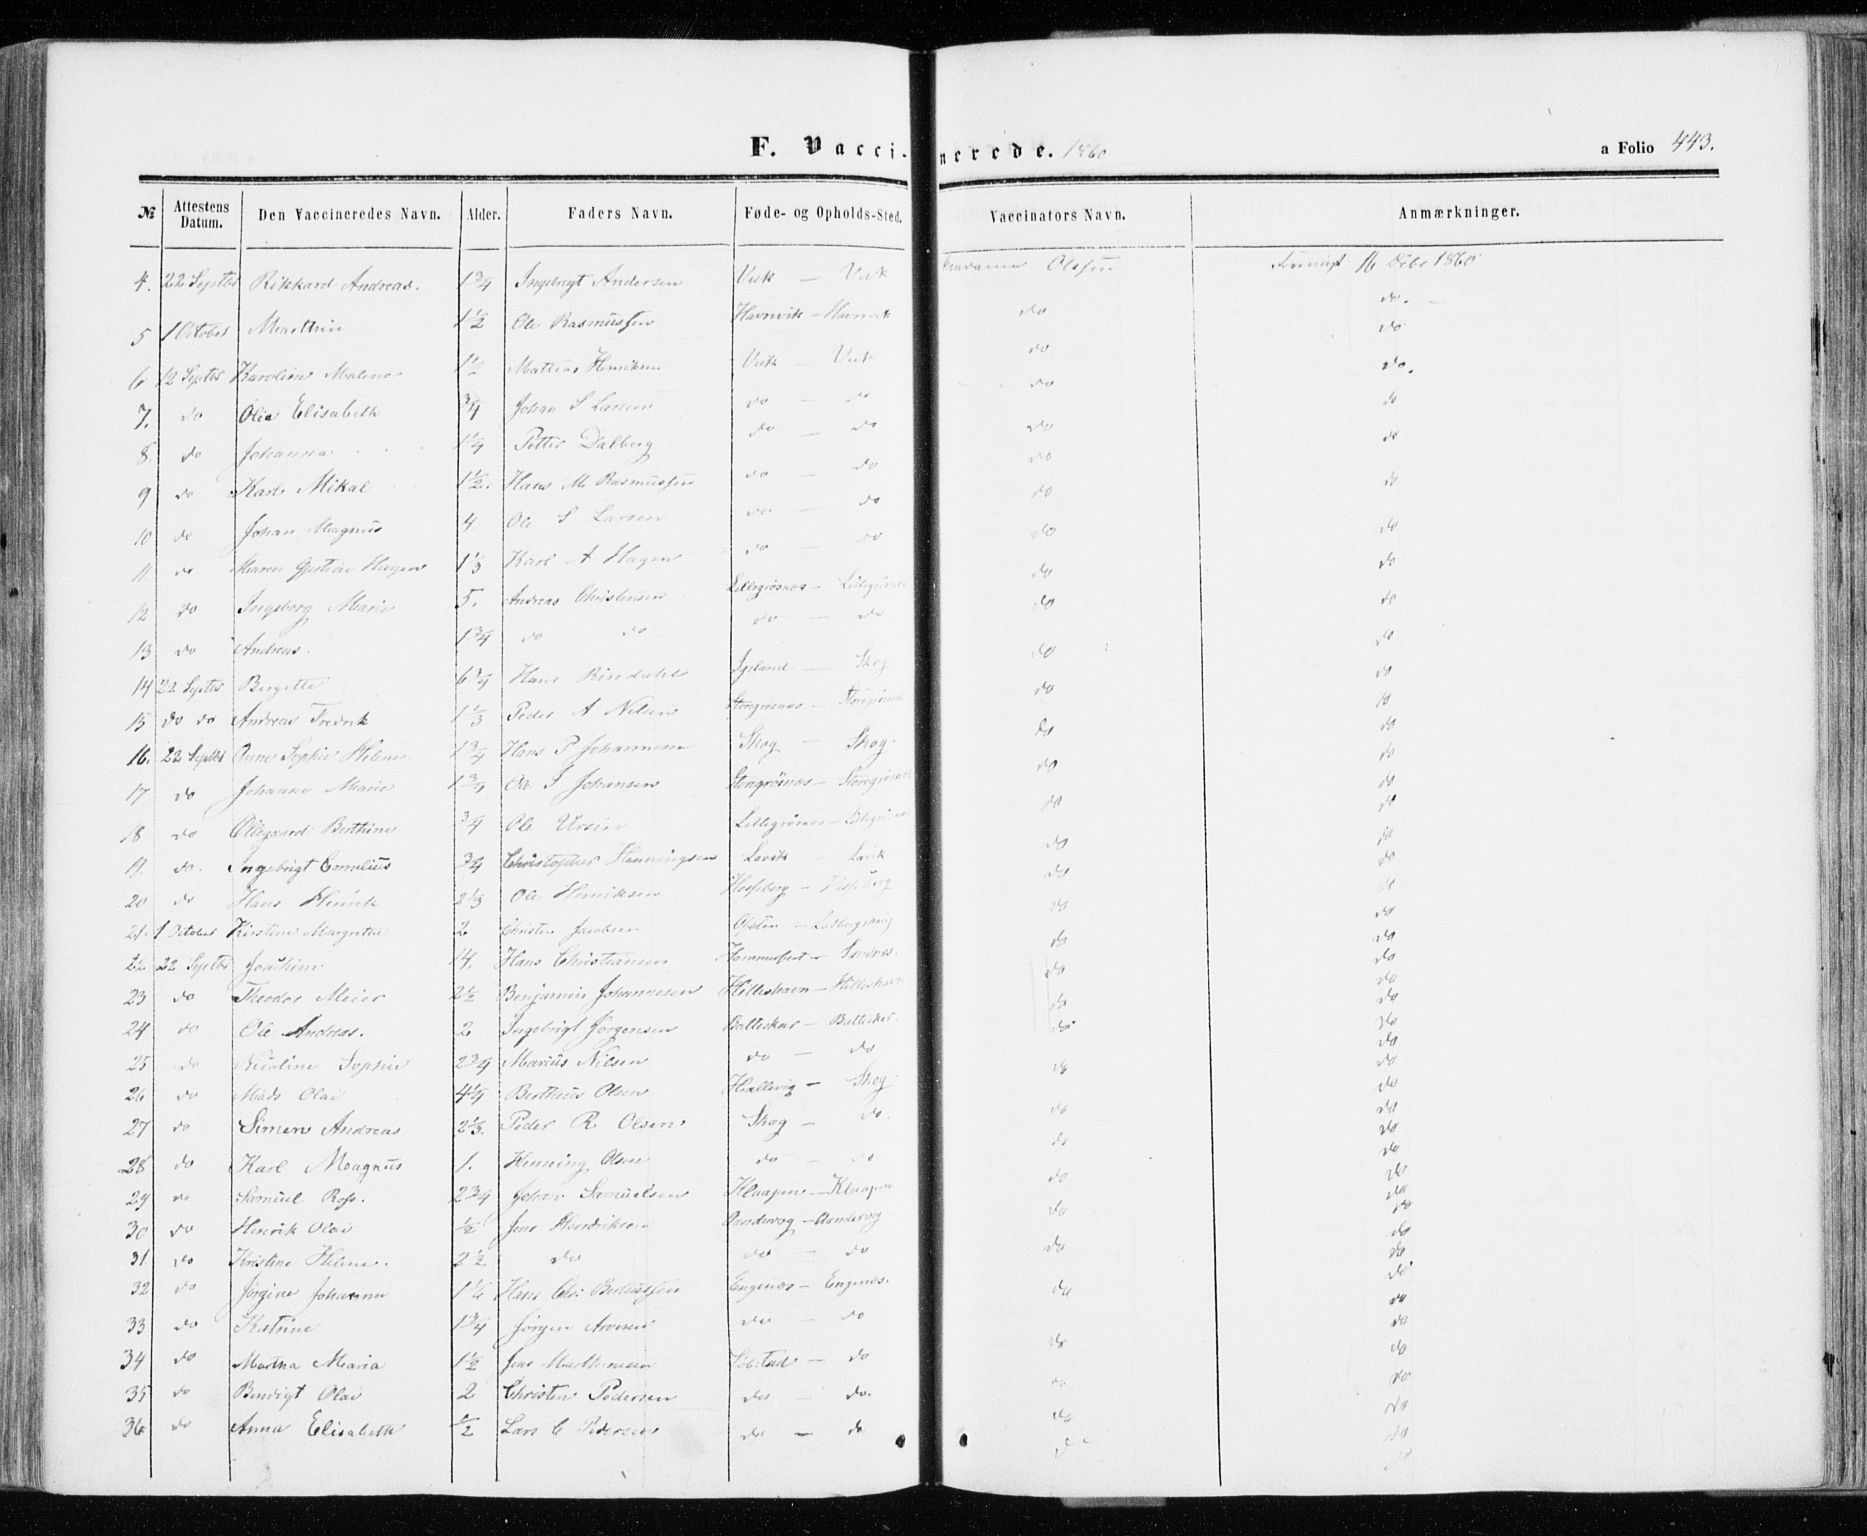 F. Vaccinerede. 1860
a Folio 443.
№ Attestens Datum. Den Vaccineredes Navn. Alder. Faders Navn. Føde- og Opholds-Sted. Vaccinators Navn. Anmærkninger.
4. 22 Septbr Rikkard Andreas. 1 3/4 Ingebrigt Andersen Vuk — Vuk Olssen 16 Debr 1860
5 1 October Marthin 1 1/2 Ole Rasmussen Havnvik — Havnvik do do
6 12 Septbr Karoline Malene 1 1/2 Mathias Henriksen Vuk — Vuk do do
7. do Olia Elisabeth 3/4 Johan S Larsen do — do do do.
8. do Johanna 1 1/4 Petter Dalberg do — do do do
9 do Karl Mikal 1 1/2. Hans M Rasmussen do — do do do
10 do Johan Magnus 4. Ole S Larsen do — do do do
11. do Maren Hagen 1 1/3 Karl A Hagen do — do do do
12 do Ingeborg Marie 5. Andreas Christensen Lillegrøsnes — Lillegrøsnes do do
13 do Andreas. 1 3/4 do do do — do do do
14 22 Septbr Bergitte 6 3/4 Hans Rindahl — Skog do do
15 do do Andreas Fredrik 1 1/3 Peder A Nilsen Storegrøsnes — Storegrøsnes do do
16. 22 Septbr Anne Sophie Helene 1 3/4 Hans P Johannesen Skog — Skog. do do
17 do Johanne Marie 1 3/4 Ole S Johansen Storegrøsnes — Storegrøsnes do do
18 do Ollegaard Berthine 3/4 Ole Ursin Lillegrøsnes — Lillegrøsnes do do
19. do. Ingebrigt Cornelius 3/4 Christopher Henningsen Lavik — Lavik do do
20 do Hans Henrik 2 1/3 Ole Henriksen do do
21. 1 October Kirstine Margrethe 2 Christen Jacobsen do do
22 22 Septbr Joachim 14. Hans Christiansen Hammerfest — Sandnes. do do
23 do Theodor Meier 2 1/2 Benjamin Johannesen Hilleshavn — Hilleshavn do do
24 do Ole Andreas. 2 Ingebrigt Jørgensen Balteskar — Balteskar. do do
25 do Nicoline Sophie 2 3/4 Marius Nilsen do — do do do
26 do Mads Olai 4 1/4 Bertheus Olsen Hallvig — Skog do do
27 do Simen Andreas 2 1/3. Peder R Olsen Skog — do. do do
28 do Karl Magnus 1. Henning Olsen do — do do do
29 do Samuel Ross. 2 3/4 Johan Samuelsen Klaapen — Klaapen do do
30 do Henrik Olai 1/2 Jens Hendriksen Aandervog — Aandervog do do
31 do Kristine Helene. 2 1/2 do do — do do do
32 do Jørgine Johanna 1 1/6 Hans Chr: Berthussen Engenes — Engenes. do do
33 do Katrine 1 3/4 Jørgen do — do do do
34 do Martha Maria 1 1/2 Jens Marthinesen Søbstad — do do do
35 do Bendigt Olai 2 Christen Pedersen do — do. do do
36 do Anna Elisabeth 1/2 Lars C Pedersen do — do do do